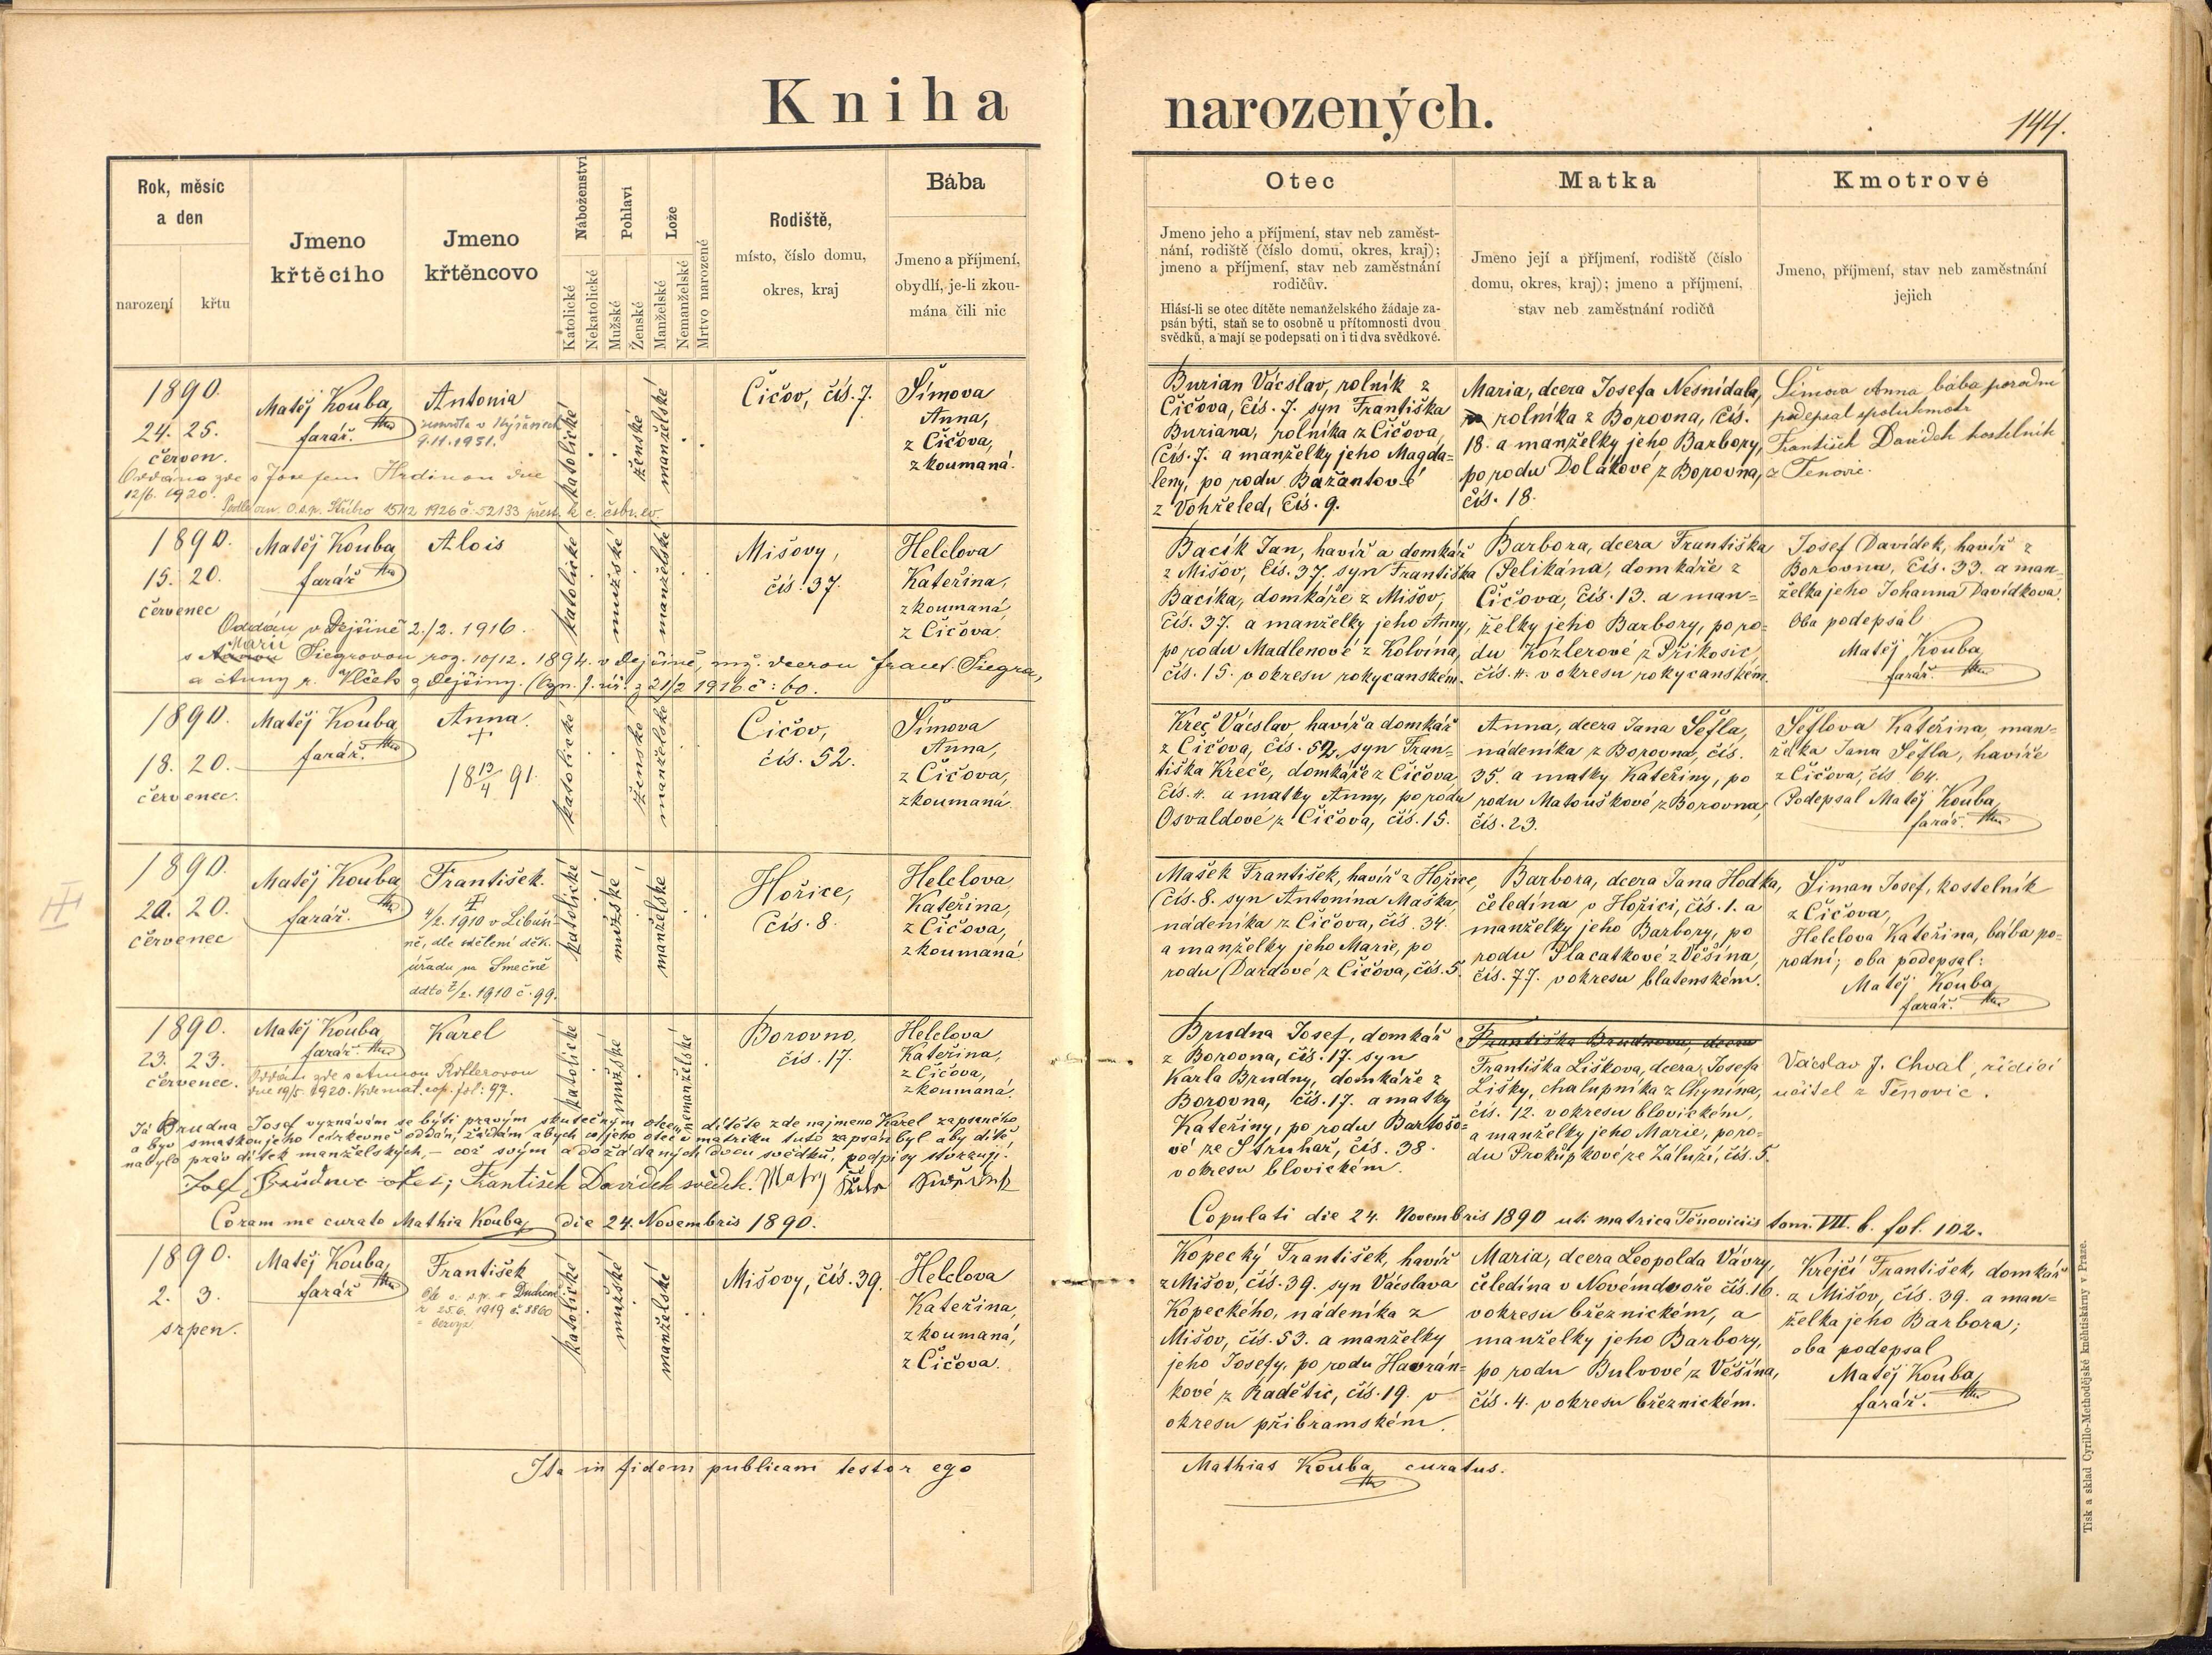 Kniha narozených.
144.
Rok, měsíc
a den
narození
křtu
Jmeno
křtěcího
Jmeno
křtěncovo
Náboženství
Katolické
Nekatolické
Pohlaví
Mužské
Ženské
Lože
Manželské
Nemanželské
Mrtvo narozené
Rodiště,
místo, číslo domu,
okres, kraj
Bába
Jmeno a příjmení,
obydlí, je-li zkou-
mána čili nic
Otec
Jmeno jeho a příjmení, stav neb zaměst-
nání, rodiště (číslo domu, okres, kraj);
jmeno a příjmení, stav neb zaměstnání
rodičův.
Hlásí-li se otec dítěte nemanželského žádaje za-
psán býti, staň se to osobně u přítomnosti dvou
svědků, a mají se podepsati on i ti dva svědkové.
Matka
Jmeno její a příjmení, rodiště (číslo
domu, okres, kraj); jmeno a příjmení,
stav neb zaměstnání rodičů
Kmotrové
Jmeno, příjmení, stav neb zaměstnání
jejich
1890.
24. 25.
červen.
Matěj Kouba
farář.
Antonia
9.11.1951.
Oddána zde s Josefem Hrdinou dne
12/6. 1920.
katolické
ženské
manželské
Čičov, čís. 7.
Šímova
Anna,
z Čičova,
zkoumaná.
Burian Václav, rolník z
Čičova, čís. 7. syn Františka
Buriana, rolníka z Čičova,
čís. 7. a manželky jeho Magda=
leny, po rodu Bažantové
z Vohřeled, čís. 9.
Maria, dcera Josefa Nesnídala,
rolníka z Borovna, čís.
18. a manželky jeho Barbory,
po rodu Dolákové z Borovna,
čís. 18.
Šímova Anna bába porodní
podepsal spolukmotr
František Davídek kostelník
z Těnovic.
1890.
15. 20.
červenec
Matěj Kouba
farář
Alois
Oddán v Dejšině 2./2. 1916.
Marií
s Siegrovou roz. 10/12. 1894. v Dejšině, mž. dcerou Frant. Siegra,
a Anny r. Vlček z Dejšiny. 21/2 1916 č: 60.
katolické
mužské
manželské
Mišovy,
čís. 37.
Helclova
Kateřina,
zkoumaná
z Čičova.
Bacík Jan, havíř a domkář
z Mišov, čís. 37. syn Františka
Bacíka, domkáře z Mišov,
čís. 37. a manželky jeho Anny,
po rodu Madlenové z Kolvína,
čís. 15. v okresu rokycanském.
Barbora, dcera Františka
Pelikána, domkáře z
Čičova, čís. 13. a man=
želky jeho Barbory, po ro=
du Kozlerové z Příkosic,
čís. 4. v okresu rokycanském.
Josef Davídek, havíř z
Borovna, čís. 33. a man=
želka jeho Johanna Davídkova.
Oba podepsal
Matěj Kouba
farář.
1890.
18. 20.
červenec.
Matěj Kouba
farář.
Anna.
+
18 13/4 91.
katolické
ženské
manželské
Čičov,
čís. 52.
Šímova
Anna,
z Čičova,
zkoumaná.
Kreč Václav, havíř a domkář
z Čičova, čís. 52, syn Fran=
tiška Kreče, domkáře z Čičova
čís. 4. a matky Anny, po rodu
Osvaldové z Čičova, čís. 15.
Anna, dcera Jana Šefla,
nádeníka z Borovna, čís.
35. a matky Kateřiny, po
rodu Matouškové z Borovna,
čís. 23.
Šeflova Kateřina, man=
želka Jana Šefla, havíře
z Čičova, čís. 64.
Podepsal Matěj Kouba
farář.
1890.
20. 20.
červenec
Matěj Kouba
farář.
František.
4/2. 1910 v Libuši=
ně, dle sdělení děk.
úřadu na Smečně
ddto 7/2. 1910 č. 99.
katolické
mužské
manželské
Hořice,
čís. 8.
Helclova
Kateřina,
z Čičova,
zkoumaná.
Mašek František, havíř z Hořice,
čís. 8. syn Antonína Maška
nádeníka z Čičova, čís. 34.
a manželky jeho Marie, po
rodu Dardové z Čičova, čís. 5.
Barbora, dcera Jana Hodka,
čeledína v Hořici, čís. 1. a
manželky jeho Barbory, po
rodu Placatkové z Věšína,
čís. 77. v okresu blatenském.
Šiman Josef, kostelník
z Čičova,
Helclova Kateřina, bába po=
rodní; oba podepsal:
Matěj Kouba
farář.
1890.
23. 23.
červenec.
Matěj Kouba
farář.
Karel
Oddán zde s Annou
dne 19/5. 1920. Vide mat. cop. fol: 97.
katolické
mužské
nemanželské
Borovno,
čís. 17.
Helclova
Kateřina,
z Čičova,
zkoumaná.
Brudna Josef, domkář
z Borovna, čís. 17. syn
Karla Brudny, domkáře z
Borovna, čís. 17. a matky
Kateřiny, po rodu Bartošo=
vé ze Struhař, čís. 38.
v okresu blovickém.
Františka Brudnova, dcera
Františka Liškova, dcera Josefa
Lišky, chalupníka z Chynína,
čís. 12. v okresu blovickém,
a manželky jeho Marie, po ro=
du Prokůpkové ze Záluží, čís. 5.
Václav J. Chval, řídící
učitel z Těnovic.
Já Brudna Josef vyznávám se býti pravým skutečným otcem dítěte zde na jmeno Karel zapsaného
a byv s matkou jeho církevně oddán, žádám abych co jeho otec v matriku tuto zapsán byl aby dítě
nabylo práv dítek manželských, — což svým a dožádaných dvou svědků, podpisy stvrzuji.
Josef Brudna otec; František Davídek svědek.
Coram me curato Mathia Kouba die 24. Novembris 1890.
Copulati die 24. Novembris 1890 uti matrica Těnoviciis tom. VII. b. fol. 102.
1890.
2. 3.
srpen.
Matěj Kouba
farář
František
25.6. 1919 č. 8860
katolické
mužské
manželské
Mišovy, čís. 39.
Helclova
Kateřina,
zkoumaná,
z Čičova.
Kopecký František, havíř
z Mišov, čís. 39. syn Václava
Kopeckého, nádeníka z
Mišov, čís. 53. a manželky
jeho Josefy, po rodu Havrán=
kové z Radětic, čís. 19. v
okresu příbramském.
Maria, dcera Leopolda Vávry,
čeledína v Novémdvoře čís. 16.
v okresu březnickém, a
manželky jeho Barbory,
po rodu Bulvové z Věšína,
čís. 4. v okresu březnickém.
Krejčí František, domkář
z Mišov, čís. 39. a man=
želka jeho Barbora;
oba podepsal
Matěj Kouba
farář.
Ita in fidem publicam testor ego Mathias Kouba, curatus.
Tisk a sklad Cyrillo-Methodějské knihtiskárny v Praze.